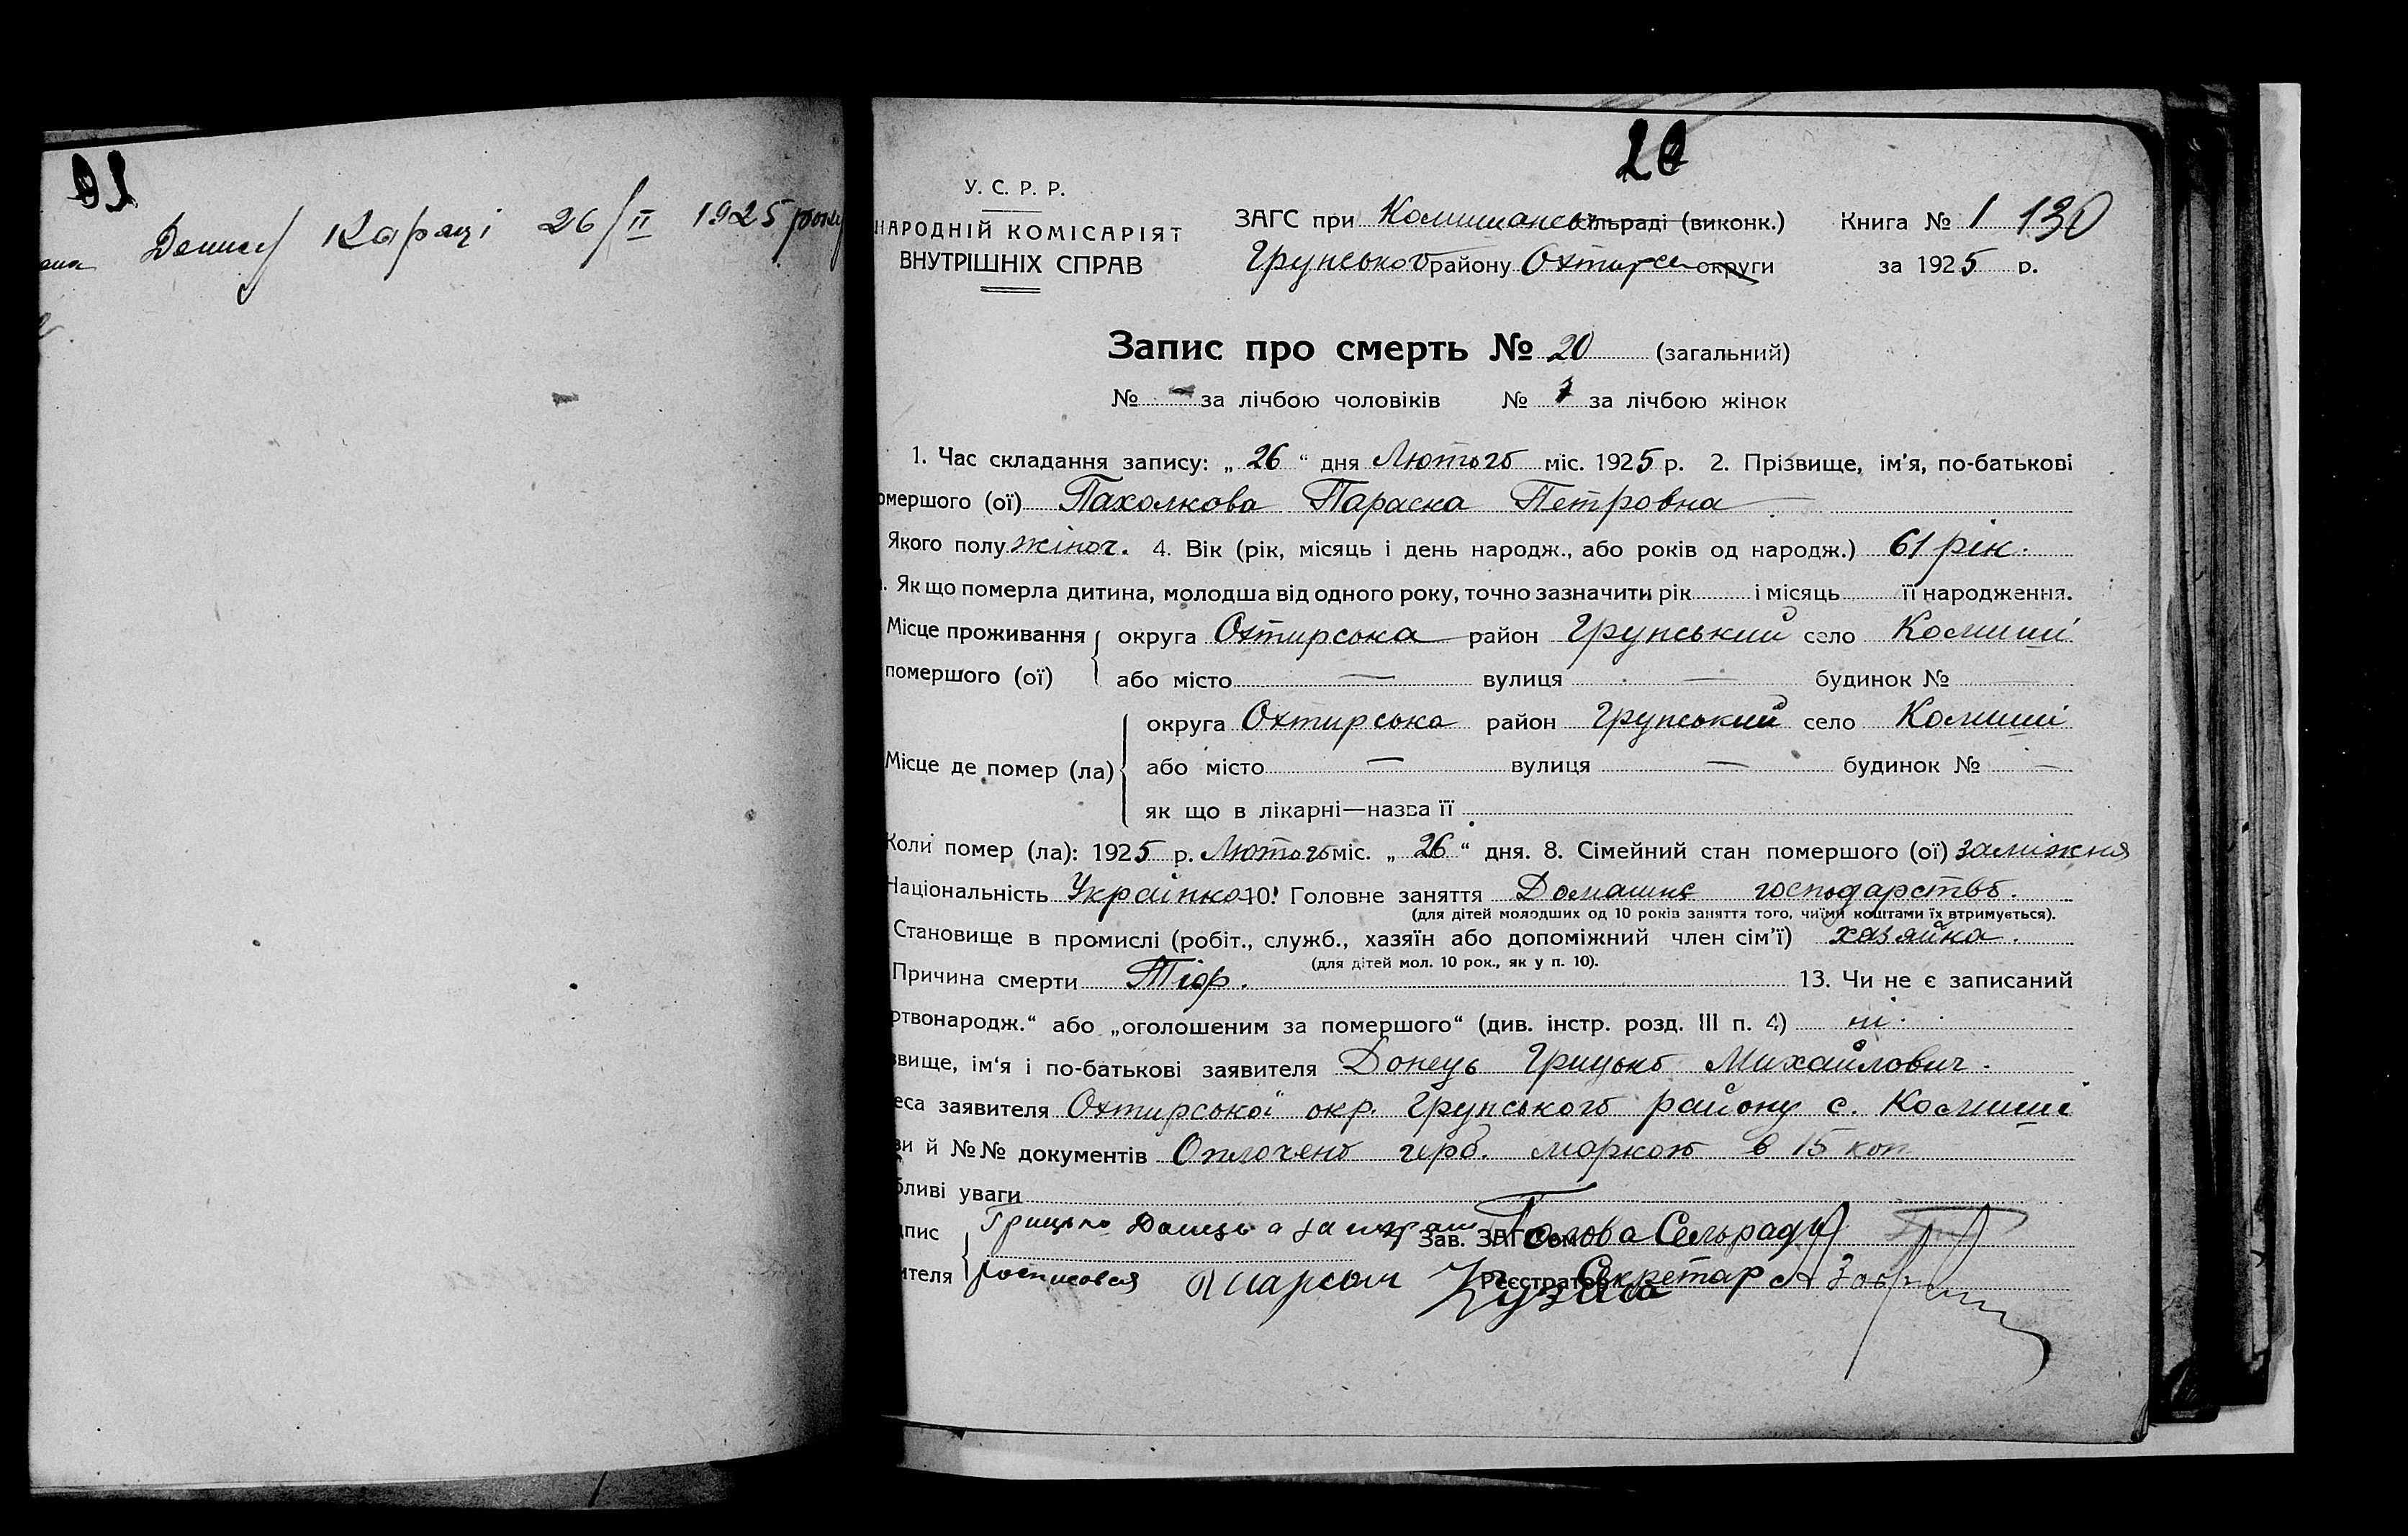 Денису Карпці 26/II 1925 року
20
У. С. Р. Р.
НАРОДНІЙ КОМІСАРІЯТ
ВНУТРІШНІХ СПРАВ
ЗАГС при Комишанськ сільраді (виконк.)
Грунського району Охтирськ округи
Книга № 1 130
за 1925 р.
Запис про смерть № 20 (загальний)
№ — за лічбою чоловіків № 7 за лічбою жінок
1. Час складання запису: „ 26 “ дня Лютого міс. 1925 р. 2. Прізвище, ім’я, по-батькові
омершого (ої) Пахолкова Параска Петровна
Якого полу жіноч. 4. Вік (рік, місяць і день народж., або років од народж.) 61 рік.
. Як що померла дитина, молодша від одного року, точно зазначити рік і місяць її народження.
Місце проживання округа Охтирська район Грунський село Комиші
помершого (ої) або місто — вулиця — будинок № —
округа Охтирська район Грунський село Комиші
Місце де помер (ла) або місто — вулиця — будинок № —
як що в лікарні—назва її
Коли помер (ла): 1925 р. Лютого міс. „ 26 “ дня. 8. Сімейний стан помершого (ої) заміжня
Національність Українка 10. Головне заняття Домашнє господарство.
(для дітей молодших од 10 років заняття того, чиїми коштами їх втримується).
Становище в промислі (робіт., служб., хазяїн або допоміжний член сім’ї) хазяйка.
(для дітей мол. 10 рок., як у п. 10).
Причина смерти Тіф. 13. Чи не є записаний
ртвонародж.“ або „оголошеним за помершого“ (див. інстр. розд. III п. 4) ні.
звище, ім‘я і по-батькові заявителя Донець Грицько Михайлович.
еса заявителя Охтирської окр. Грунського району с. Комиші
ви й №№ документів Оплочено герб. маркою в 15 коп
бливі уваги
дпис Грицько Донець а за неграм Зав. ЗАГС'ом Голова Сельради
ителя росписовся Реєстратор Секретар